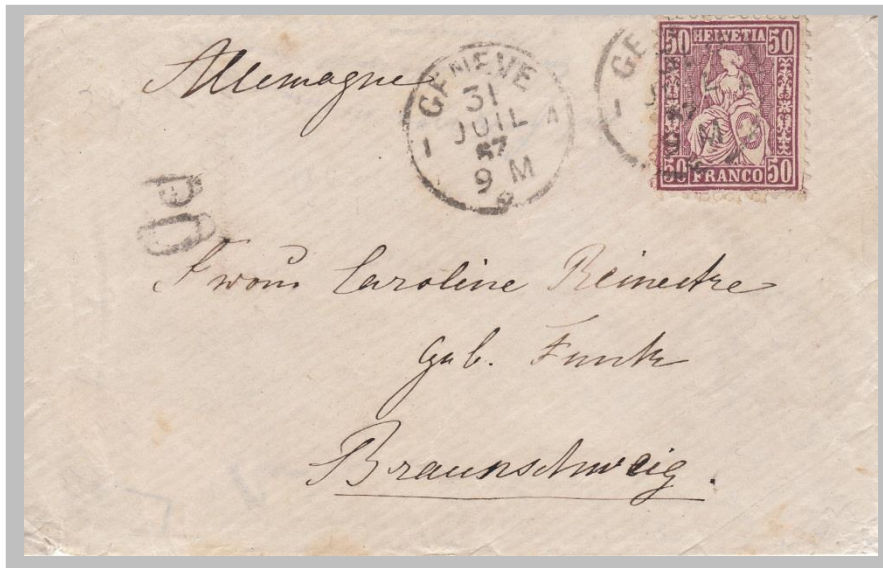 Allemagne
GENEVE
31
JUIL
67
9 M
GE
9 M
50 HELVETIA 50
50 FRANCO 50
PD
Caroline Reinecke
geb. Funk
Braunschweig.